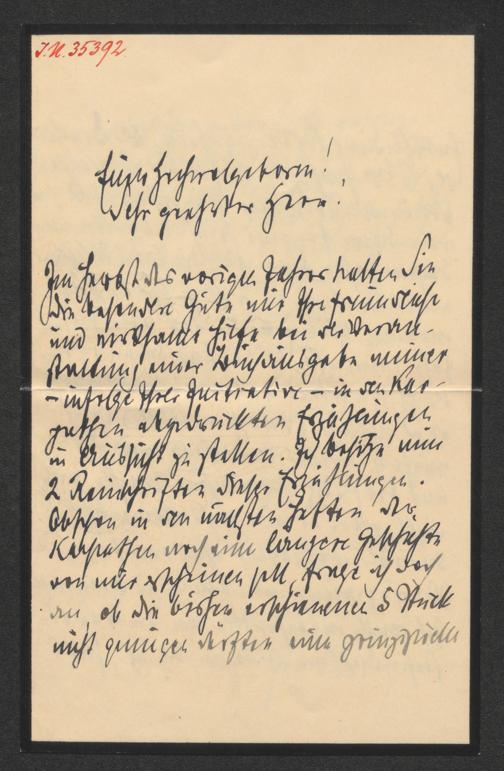 J.N. 35392
Euer Hochwolgeboren!
Sehr geehrter Herr!
Im Herbst des vorigen Jahres hatten Sie
die besondere Güte mir Ihre freundliche
und wirksame Hilfe bei der Veran-
staltung einer Buchausgabe meiner
– infolge Ihrer Initiative – in den Kar-
pathen abgedruckten Erzählungen
in Aussicht zu stellen. Ich besitze nun
2 Reinschriften dieser Erzählungen.
Obschon in den nächsten Heften der
Karpathen noch eine längere Geschichte
von mir erscheinen soll, frage ich doch
an, ob die bisher erschienenen 5 Stück
nicht genügen dürften eine prinzipielle